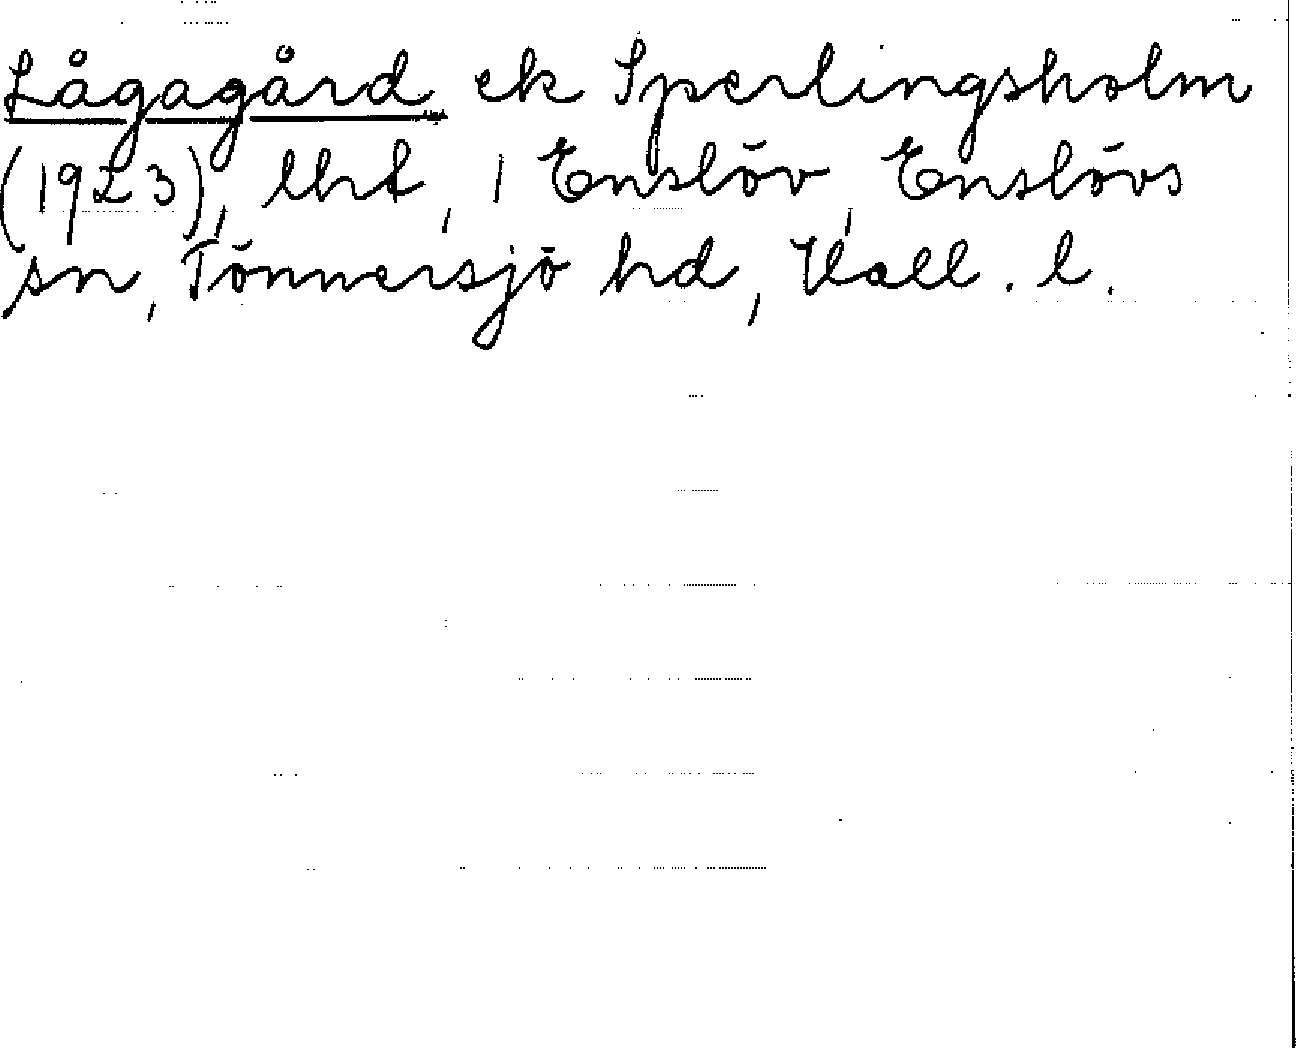 Lågagård ek Sperlingsholm
(1923), lht, 1 Enslöv, Enslövs
sn, Tönnersjö hd, Hall. l.